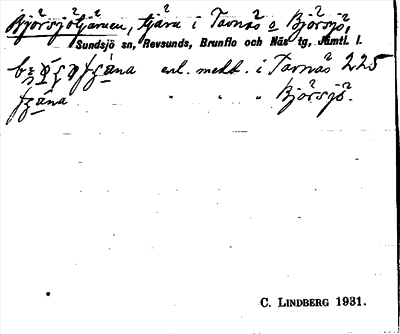 Björsjötjärnen, tjärn i Tarnäs o Björsjö,
Sundsjö sn, Revsunds, Brunflo och Näs tg, Jämtl. l.
enl. medd. i Tarnäs 225
" " " Björsjö.
C. LINDBERG 1931.